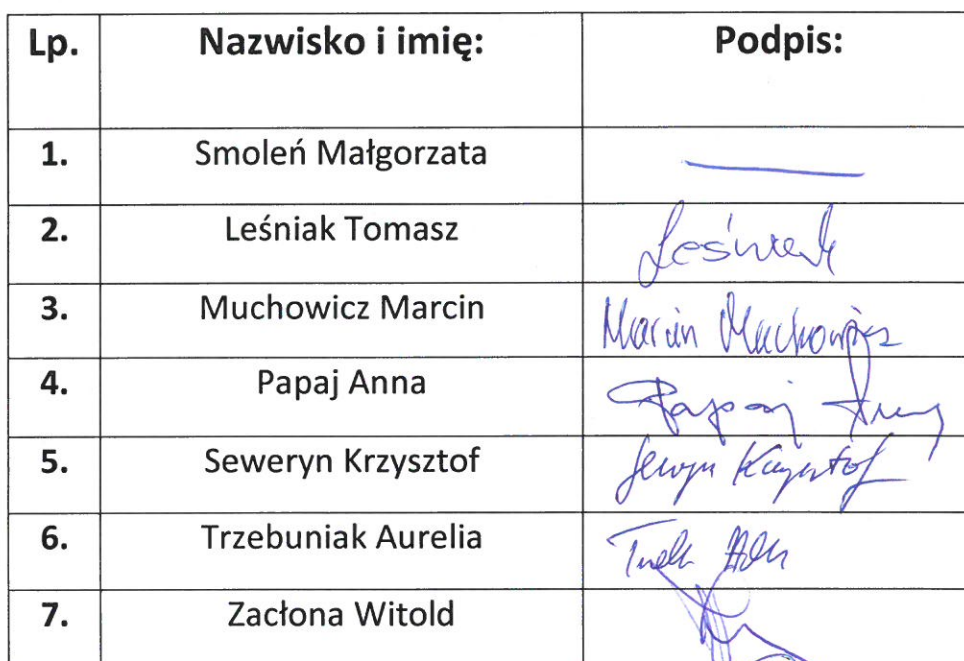 Lp. Nazwisko i imię: Podpis:
1. Smoleń Małgorzata
2. Leśniak Tomasz Leśniak
3. Muchowicz Marcin Marcin Muchowicz
4. Papaj Anna Papaj Anna
5. Seweryn Krzysztof Seweryn Krzysztof
6. Trzebuniak Aurelia
7. Zacłona Witold